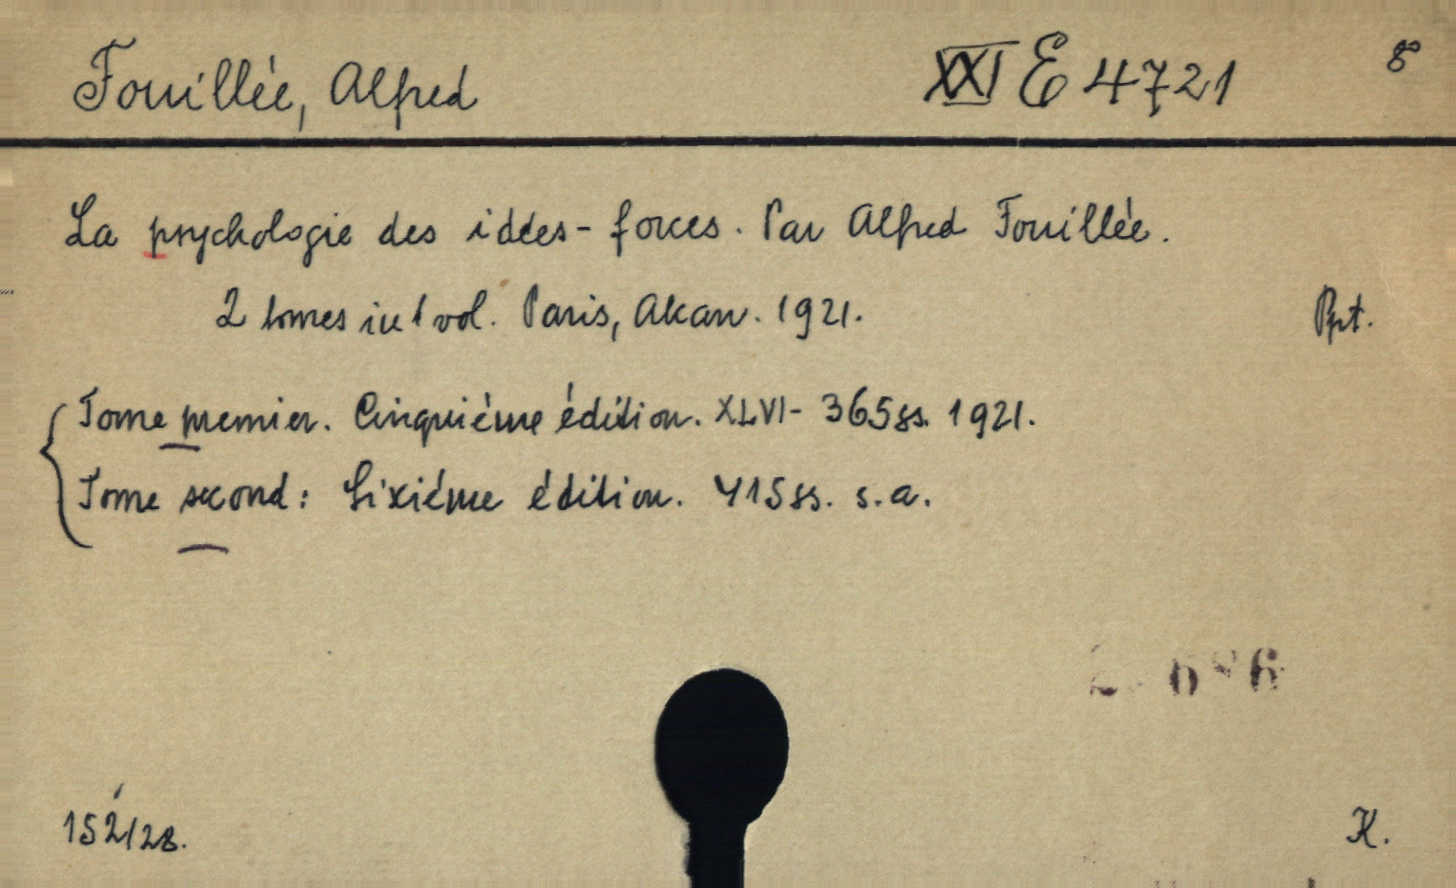 Fouillée, Alfred XXI E 4721 8°
La psychologie des idées-forces. Par Alfred Fouillée.
2 tomes in 1 vol. Paris, Alcan. 1921. Ppt.
Tome premier. Cinquième édition. XLVI-365 ss. 1921.
Tome second: Sixième édition. 415 ss. s.a.
152/28. K.